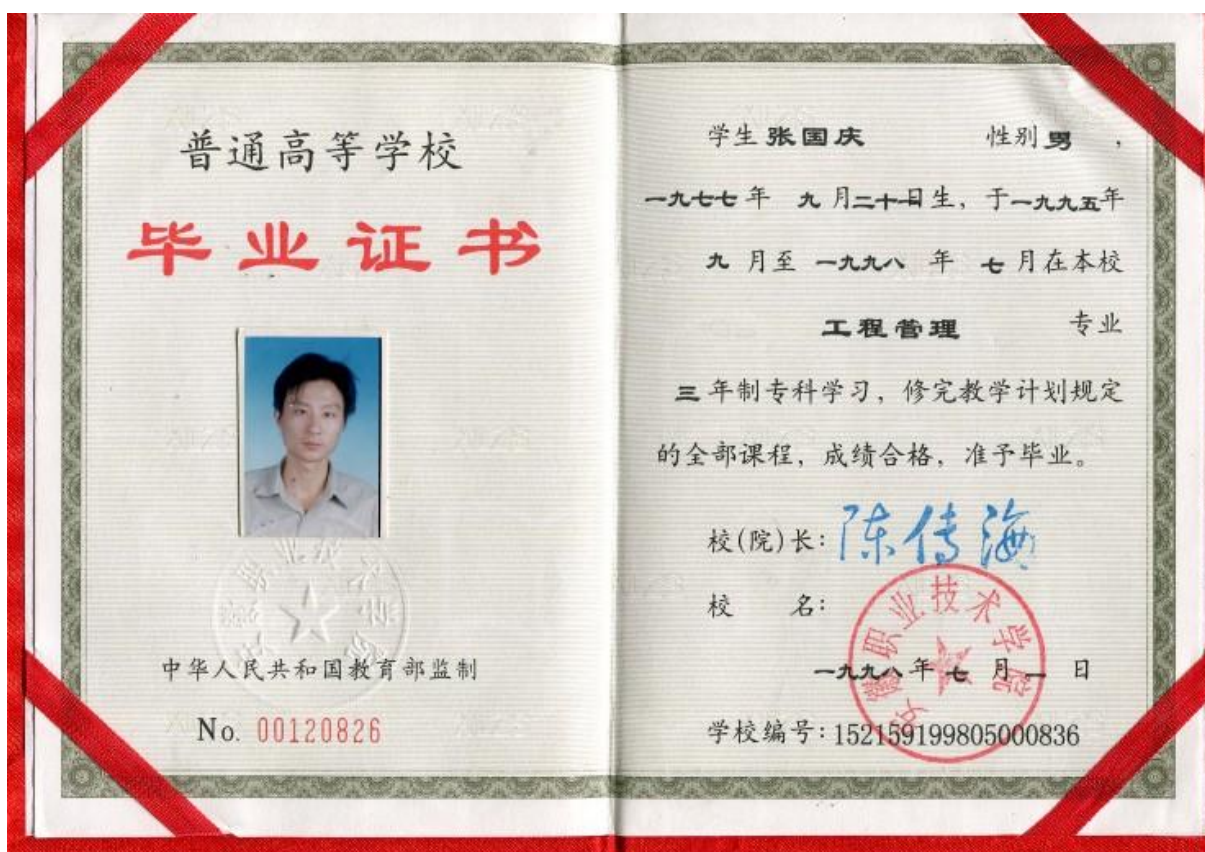 普通高等学校
毕业证书
中华人民共和国教育部监制
No. 00120826
学生 张国庆 性别 男 ,
一九七七年 九月二十日生, 于一九九五年
九 月至 一九九八 年 七 月在本校
工程管理 专业
三年制专科学习, 修完教学计划规定
的全部课程, 成绩合格, 准予毕业。
校(院)长: 陈传海
校 名:
安徽职业技术学院
一九九八年 七 月 一 日
学校编号: 152159199805000836